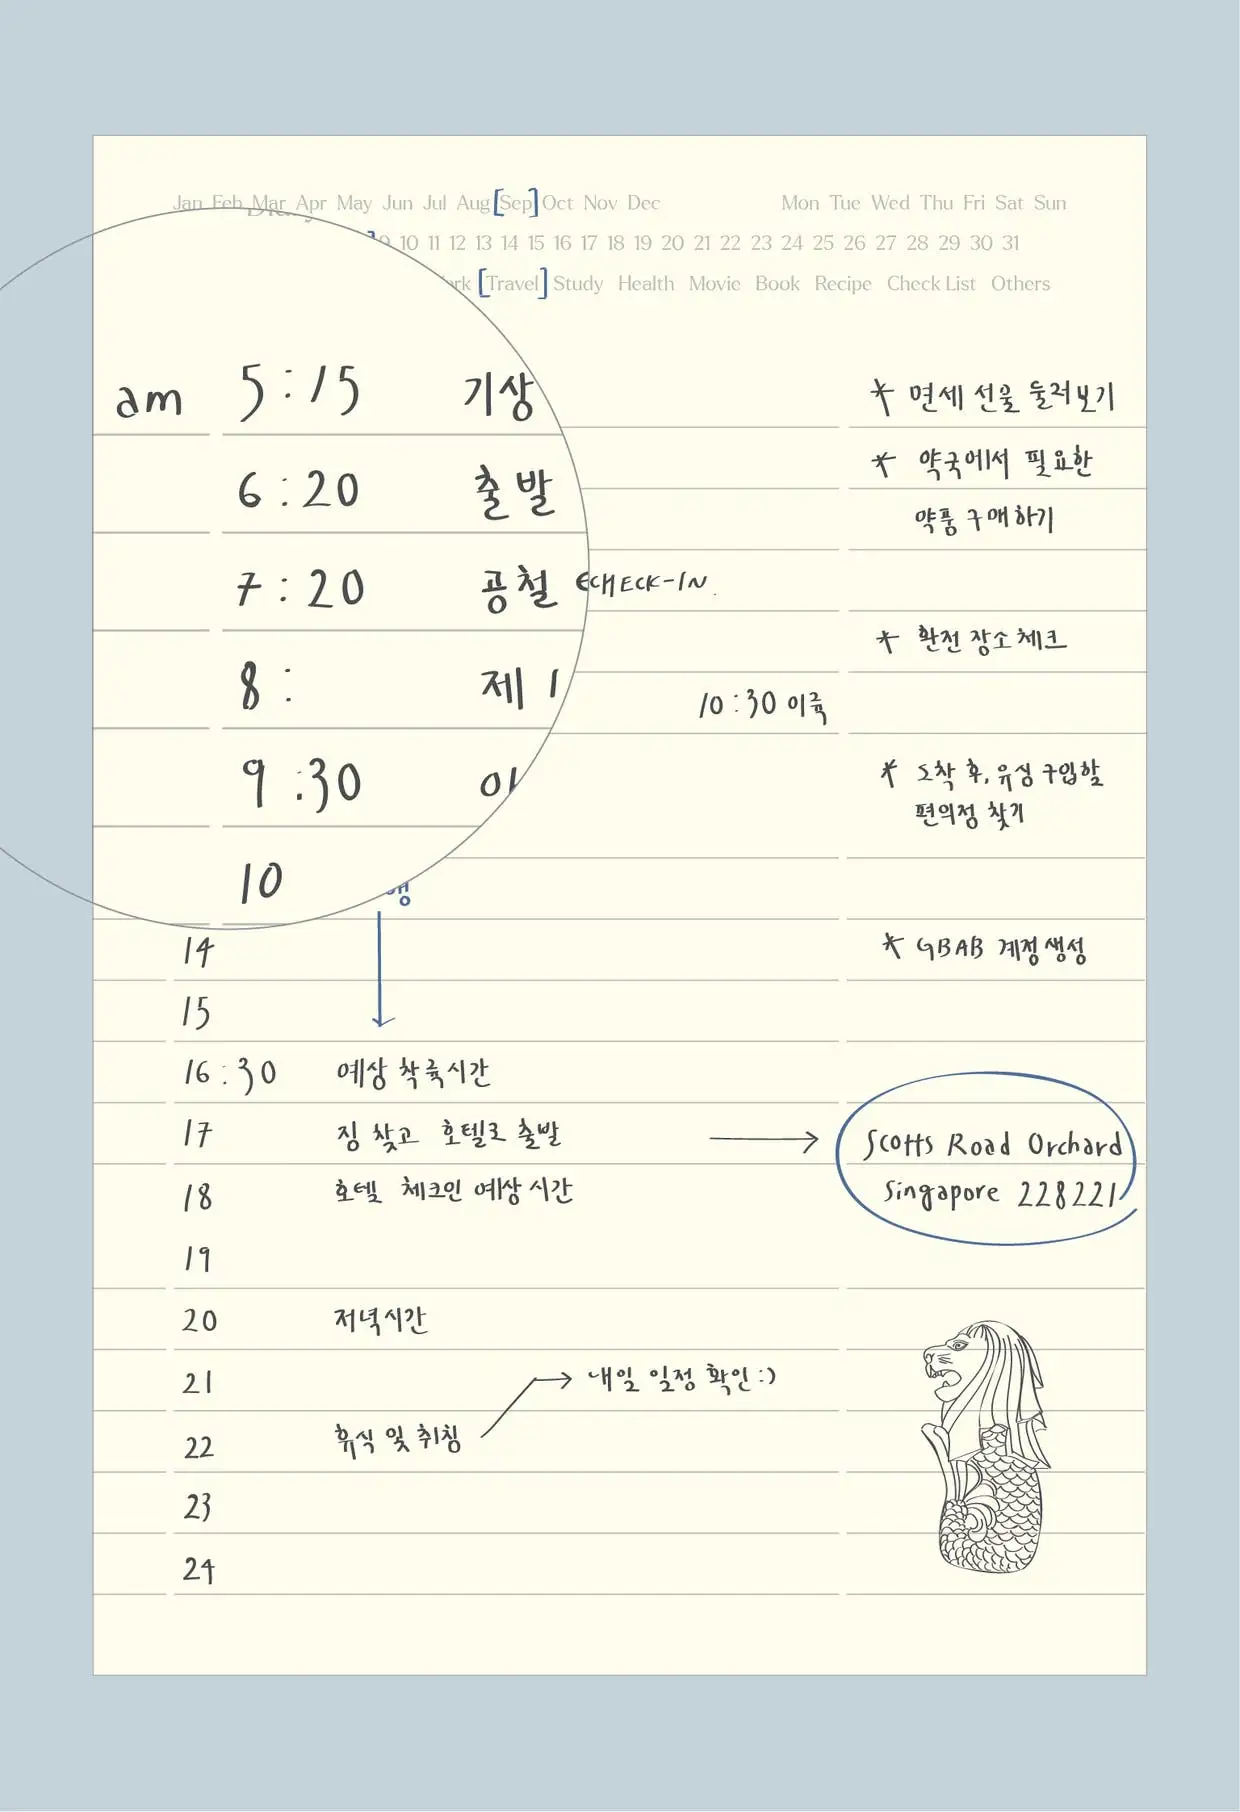 Jan Feb Mar Apr May Jun Jul Aug [Sep] Oct Nov Dec Mon Tue Wed Thu Fri Sat Sun
] 9 10 11 12 13 14 15 16 17 18 19 20 21 22 23 24 25 26 27 28 29 30 31
[Travel] Study Health Movie Book Recipe Check List Others
am 5:15 기상
* 면세 선물 둘러보기
6:20 출발
* 약국에서 필요한
약품 구매하기
7:20 공철 CHECK-IN.
* 환전 장소 체크
8: 제 1
10:30 이륙
9:30
* 도착 후, 유심 구입할
편의점 찾기
10
14
* GBAB 계정 생성
15
16:30 예상 착륙시간
17 짐 찾고 호텔로 출발 → Scotts Road Orchard
Singapore 228221
18 호텔 체크인 예상 시간
19
20 저녁시간
21 → 내일 일정 확인:)
22 휴식 및 취침
23
24